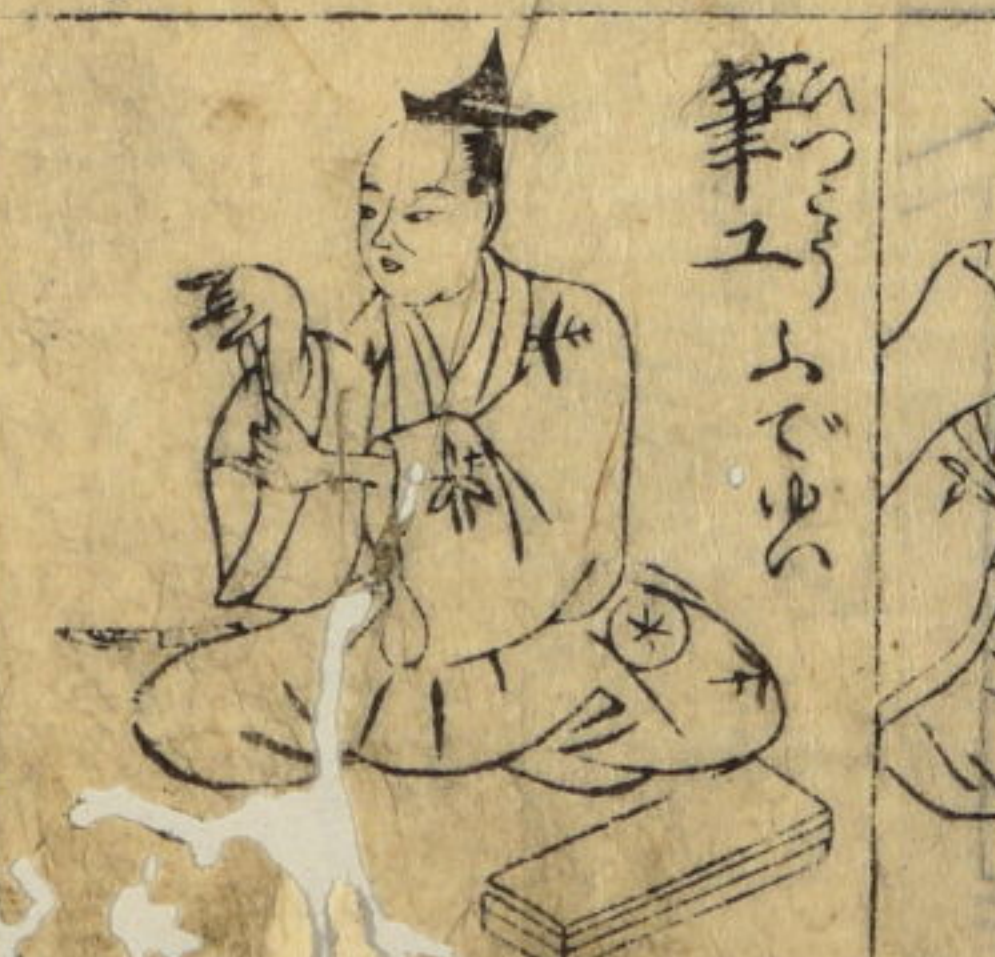 筆工
ひつこう
ふでゆい